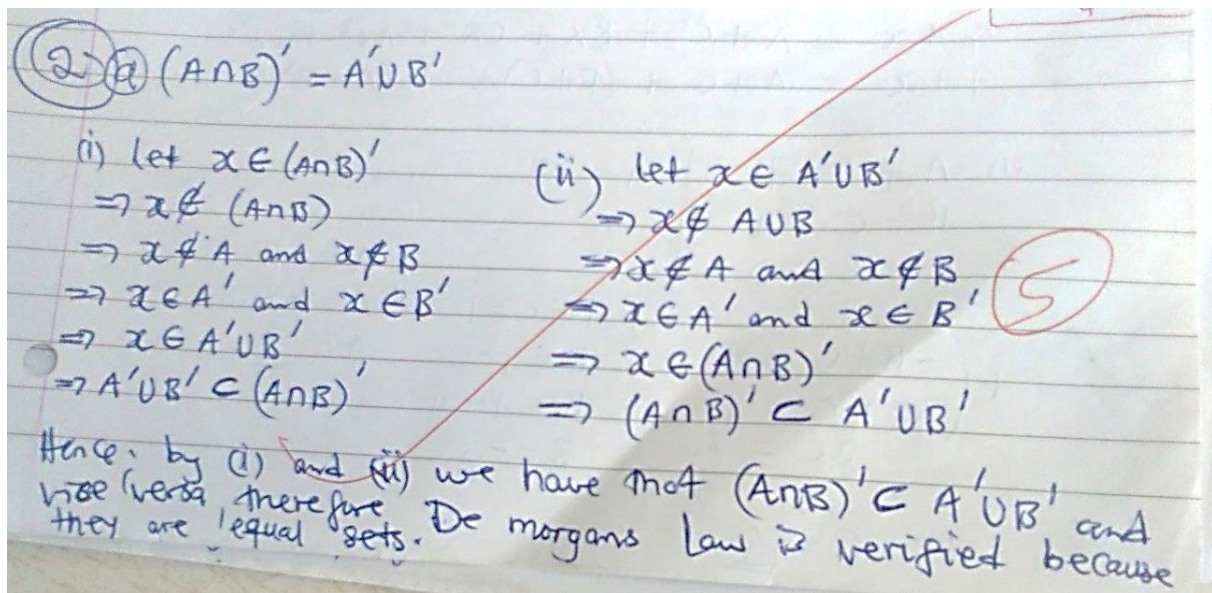 2 a (A∩B)' = A'∪B'
(i) let x ∈ (A∩B)'
⇒ x ∉ (A∩B)
⇒ x ∉ A and x ∉ B
⇒ x ∈ A' and x ∈ B'
⇒ x ∈ A'∪B'
⇒ A'∪B' ⊂ (A∩B)'
(ii) let x ∈ A'∪B'
⇒ x ∉ A∪B
⇒ x ∉ A and x ∉ B
⇒ x ∈ A' and x ∈ B'
⇒ x ∈ (A∩B)'
⇒ (A∩B)' ⊂ A'∪B'
5
Hence. by (i) and (ii) we have that (A∩B)' ⊂ A'∪B' and
vise versa, therefore De morgans Law is verified because
they are equal sets.